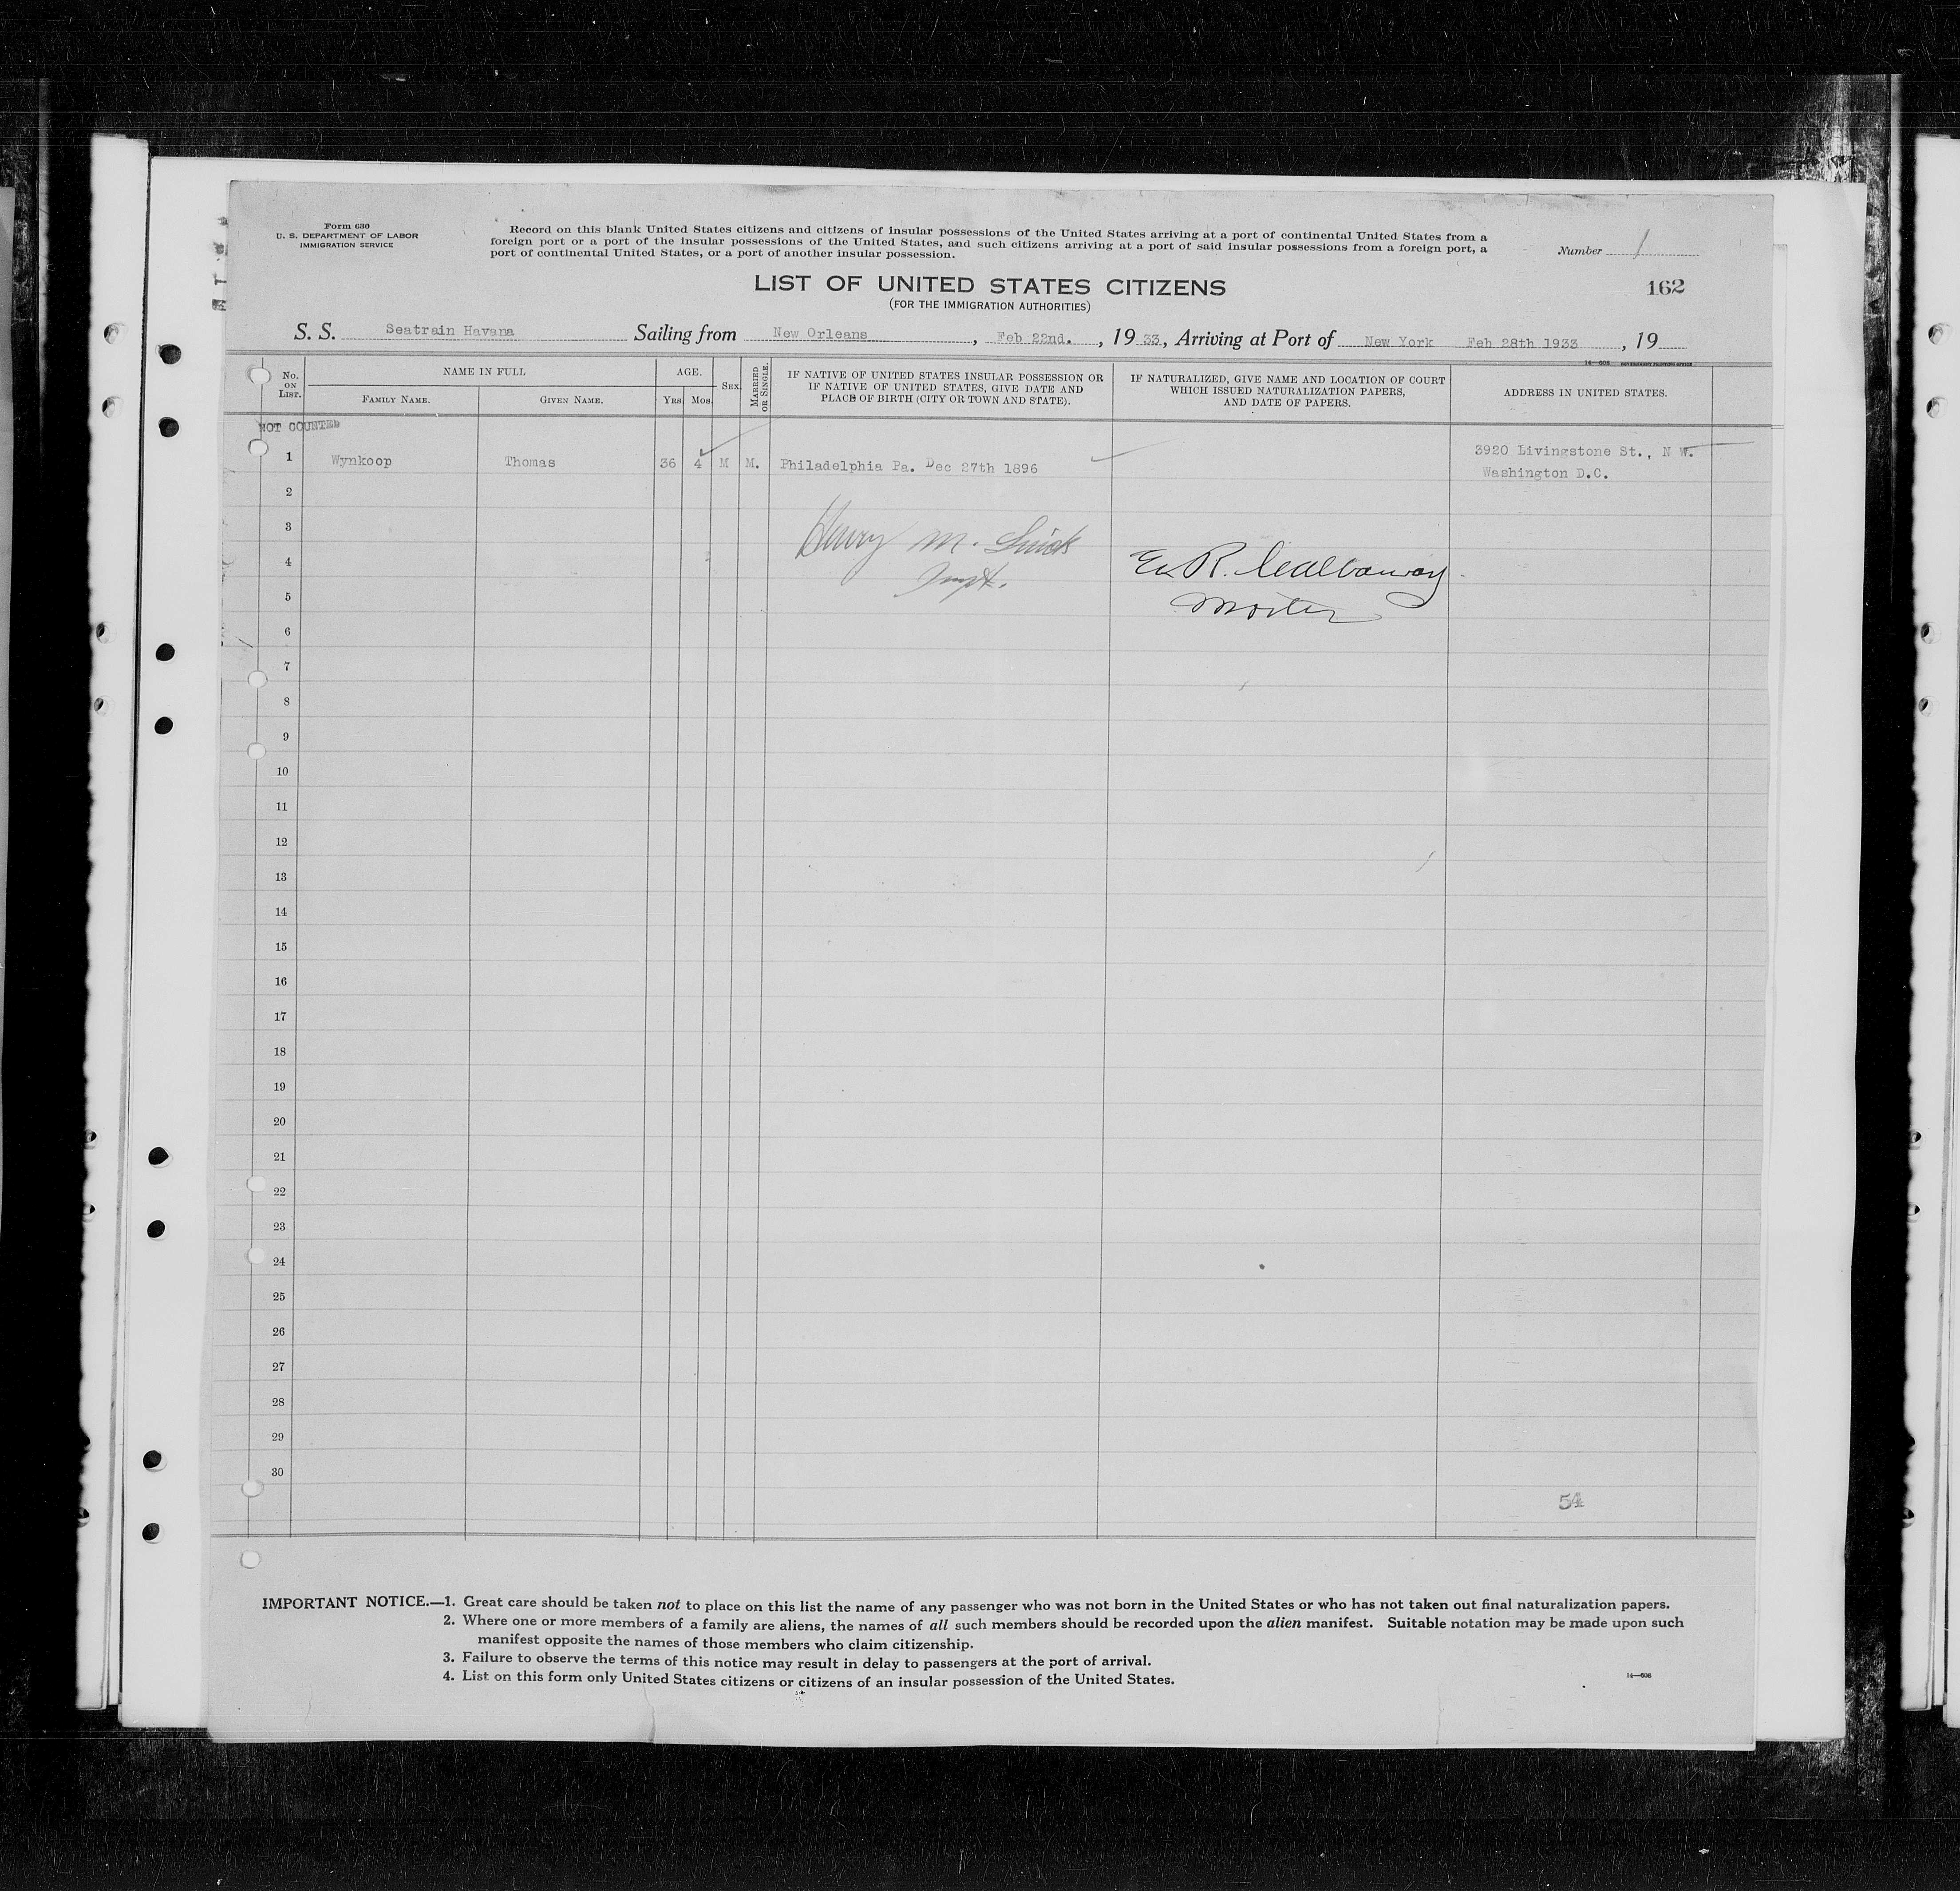 Form 630
U. S. DEPARTMENT OF LABOR
IMMIGRATION SERVICE
Record on this blank United States citizens and citizens of insular possessions of the United States arriving at a port of continental United States from a
foreign port or a port of the insular possessions of the United States, and such citizens arriving at a port of said insular possessions from a foreign port, a
port of continental United States, or a port of another insular possession.
Number 1
LIST OF UNITED STATES CITIZENS
(FOR THE IMMIGRATION AUTHORITIES)
162
S. S. Seatrain Havana Sailing from New Orleans, Feb 22nd., 19 33, Arriving at Port of New York Feb 28th 1933, 19
14—608 GOVERNMENT PRINTING OFFICE
No. ON LIST.
NAME IN FULL
FAMILY NAME.
GIVEN NAME.
AGE.
YRS. MOS.
SEX.
MARRIED OR SINGLE.
IF NATIVE OF UNITED STATES INSULAR POSSESSION OR
IF NATIVE OF UNITED STATES, GIVE DATE AND
PLACE OF BIRTH (CITY OR TOWN AND STATE).
IF NATURALIZED, GIVE NAME AND LOCATION OF COURT
WHICH ISSUED NATURALIZATION PAPERS,
AND DATE OF PAPERS.
ADDRESS IN UNITED STATES.
NOT COUNTED
1 Wynkoop Thomas 36 4 M M. Philadelphia Pa. Dec 27th 1896 3920 Livingstone St., N W.
Washington D.C.
2
3
Henry M.
4
R.
5
6
7
8
9
10
11
12
13
14
15
16
17
18
19
20
21
22
23
24
25
26
27
28
29
30
54
IMPORTANT NOTICE.—1. Great care should be taken not to place on this list the name of any passenger who was not born in the United States or who has not taken out final naturalization papers.
2. Where one or more members of a family are aliens, the names of all such members should be recorded upon the alien manifest. Suitable notation may be made upon such
manifest opposite the names of those members who claim citizenship.
3. Failure to observe the terms of this notice may result in delay to passengers at the port of arrival.
4. List on this form only United States citizens or citizens of an insular possession of the United States.
14—608